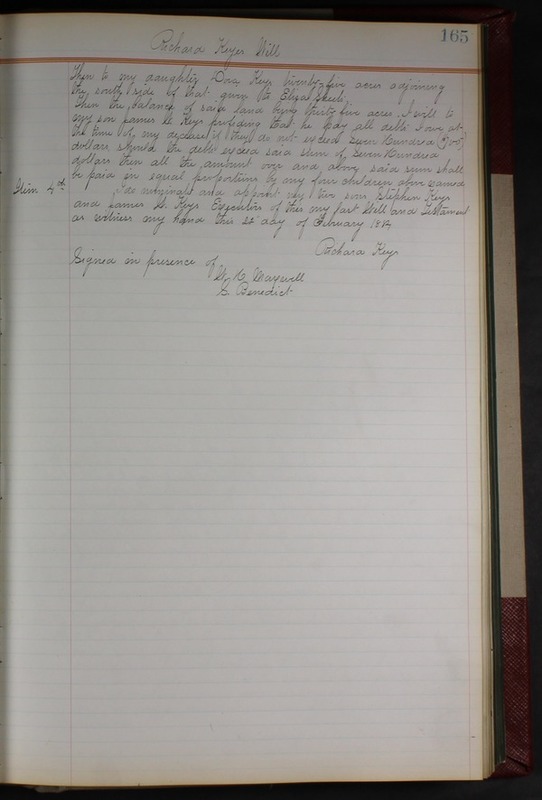 165
Richard Keyes Will
Then to my daughter Dora Keys twenty-five acres adjoining
the south side of that given to Eliza
Then the balance of said land being thirty five acres I will to
my son James W Keys providing that he pay all debts I owe at
the time of my decease if they do not exceed Seven Hundred (700)
dollars should the debts exceed said sum of Seven Hundred
dollars then all the amount over and above said sum shall
be paid in equal proportions by my four children above named
Item 4th I do nominate and appoint my two sons Stephen Keys
and James W. Keys Executors of this my last Will and Testament
as witness my hand this 22 day of February 1884
Richard Keys
Signed in presence of
W. H. Maxwell
G. Benedict